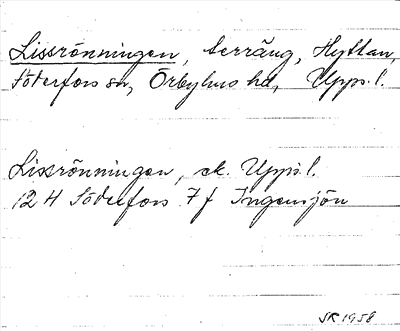 Lissrönningen, terräng, Hyttan,
Söderfors sn, Örbyhus hd, Upps. l.
Lissrönningen, ek. Upps. l.
12 H Söderfors 7 f Ingemsjön
SK 1958